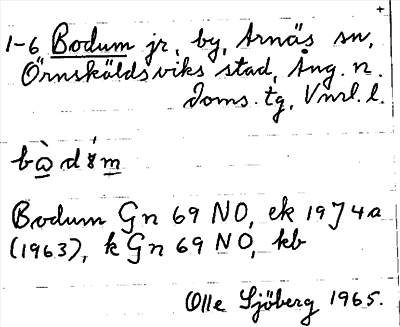 +
1-6 Bodum jr, by, Arnäs sn,
Örnsköldsviks stad, Ång. n.
doms. tg, Vnrl. l.
Bodum Gn 69 NO, ek 19J4a
(1963), k Gn 69 NO, kb
Olle Sjöberg 1965.